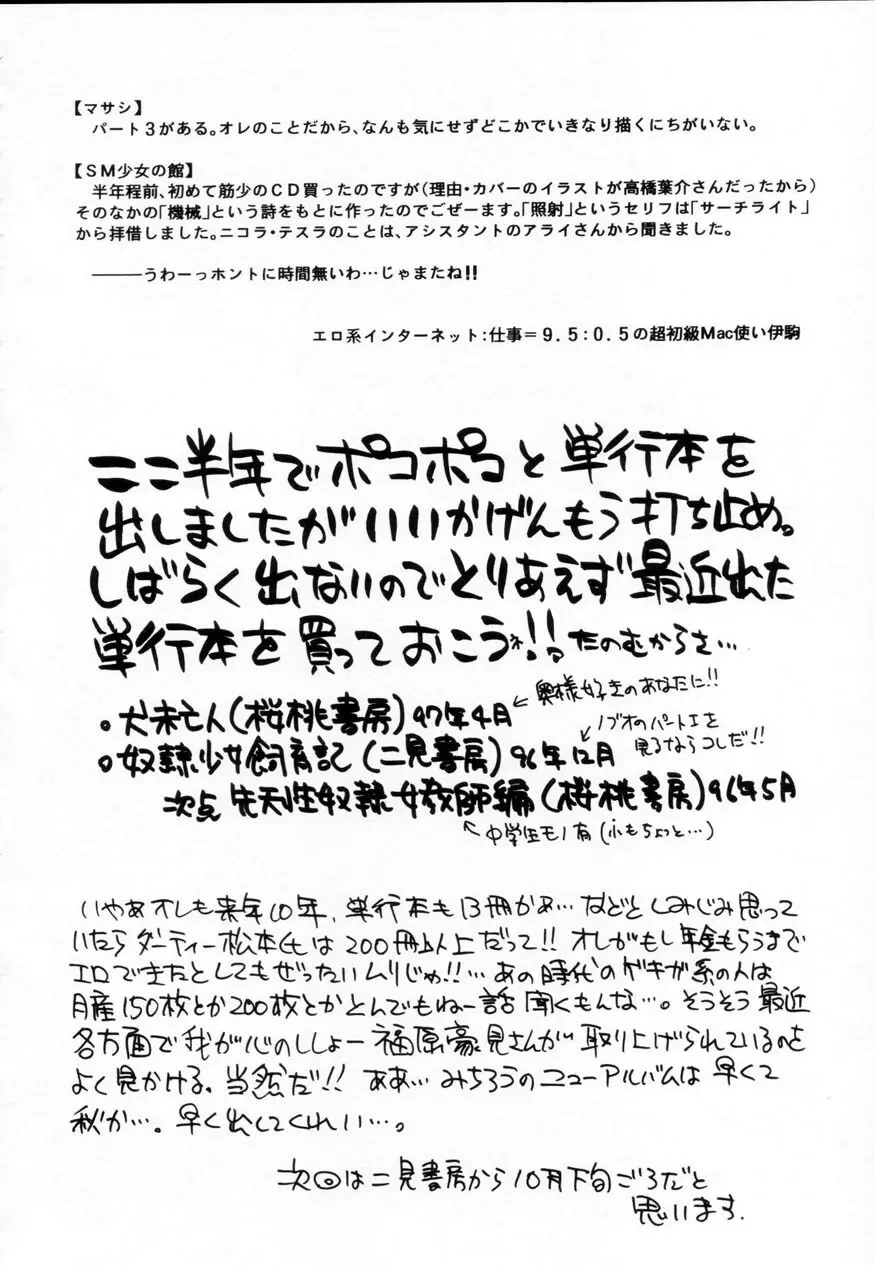 【マサシ】
パート3がある。オレのことだから、なんも気にせずどこかでいきなり描くにちがいない。
【SM少女の館】
半年程前、初めて筋少のCD買ったのですが(理由・カバーのイラストが高橋葉介さんだったから)
そのなかの「機械」という詩をもとに作ったのでごぜーます。「照射」というセリフは「サーチライト」
から拝借しました。ニコラ・テスラのことは、アシスタントのアライさんから聞きました。
―――うわーっホントに時間無いわ…じゃまたね!!
エロ系インターネット:仕事=9.5:0.5の超初級Mac使い伊駒
ここ半年でポコポコと単行本を
出しましたがいいかげんもう打ち止め。
しばらく出ないのでとりあえず最近出た
単行本を買っておこうネ!!たのむからさ…
。犬未亡人(桜桃書房)97年4月
←奥様好きのあなたに!!
。奴隷少女飼育記(二見書房)96年12月
←ノブオのパートIを
見るならコレだ!!
次点 先天性奴隷女教師編(桜桃書房)96年5月
←中学生モノ有(小もちょっと…)
いやあオレも来年10年、単行本も13冊かぁ…などとしみじみ思って
いたらダーティー松本氏は200冊以上だって!!オレがもし年金もらうまで
エロできたとしてもぜったいムリじゃ!!…あの時代のゲキガ系の人は
月産150枚とか200枚とかとんでもねー話聞くもんな…。そうそう最近
各方面で我が心のししょー福原豪見さんが取り上げられているのを
よく見かける。当然だ!!ああ…みちろうのニューアルバムは早くて
秋か…。早く出してくれい…。
次回は二見書房から10月下旬ごろだと
思います.